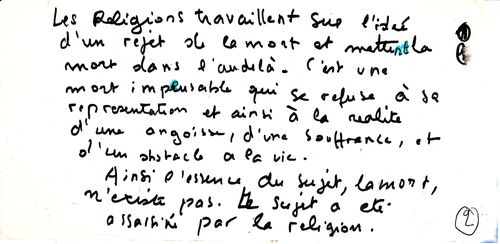 Les Religions travaillent sur l'idée
d'un rejet de la mort et mettent la
mort dans l'audelà. C'est une
mort impensable qui se refuse à sa
representation et ainsi à la realite
d'une angoisse, d'une souffrance, et
d'un obstacle a la vie.
Ainsi l'essence du sujet, la mort,
n'existe pas. Le sujet a eté
assassiné par la religion.
2